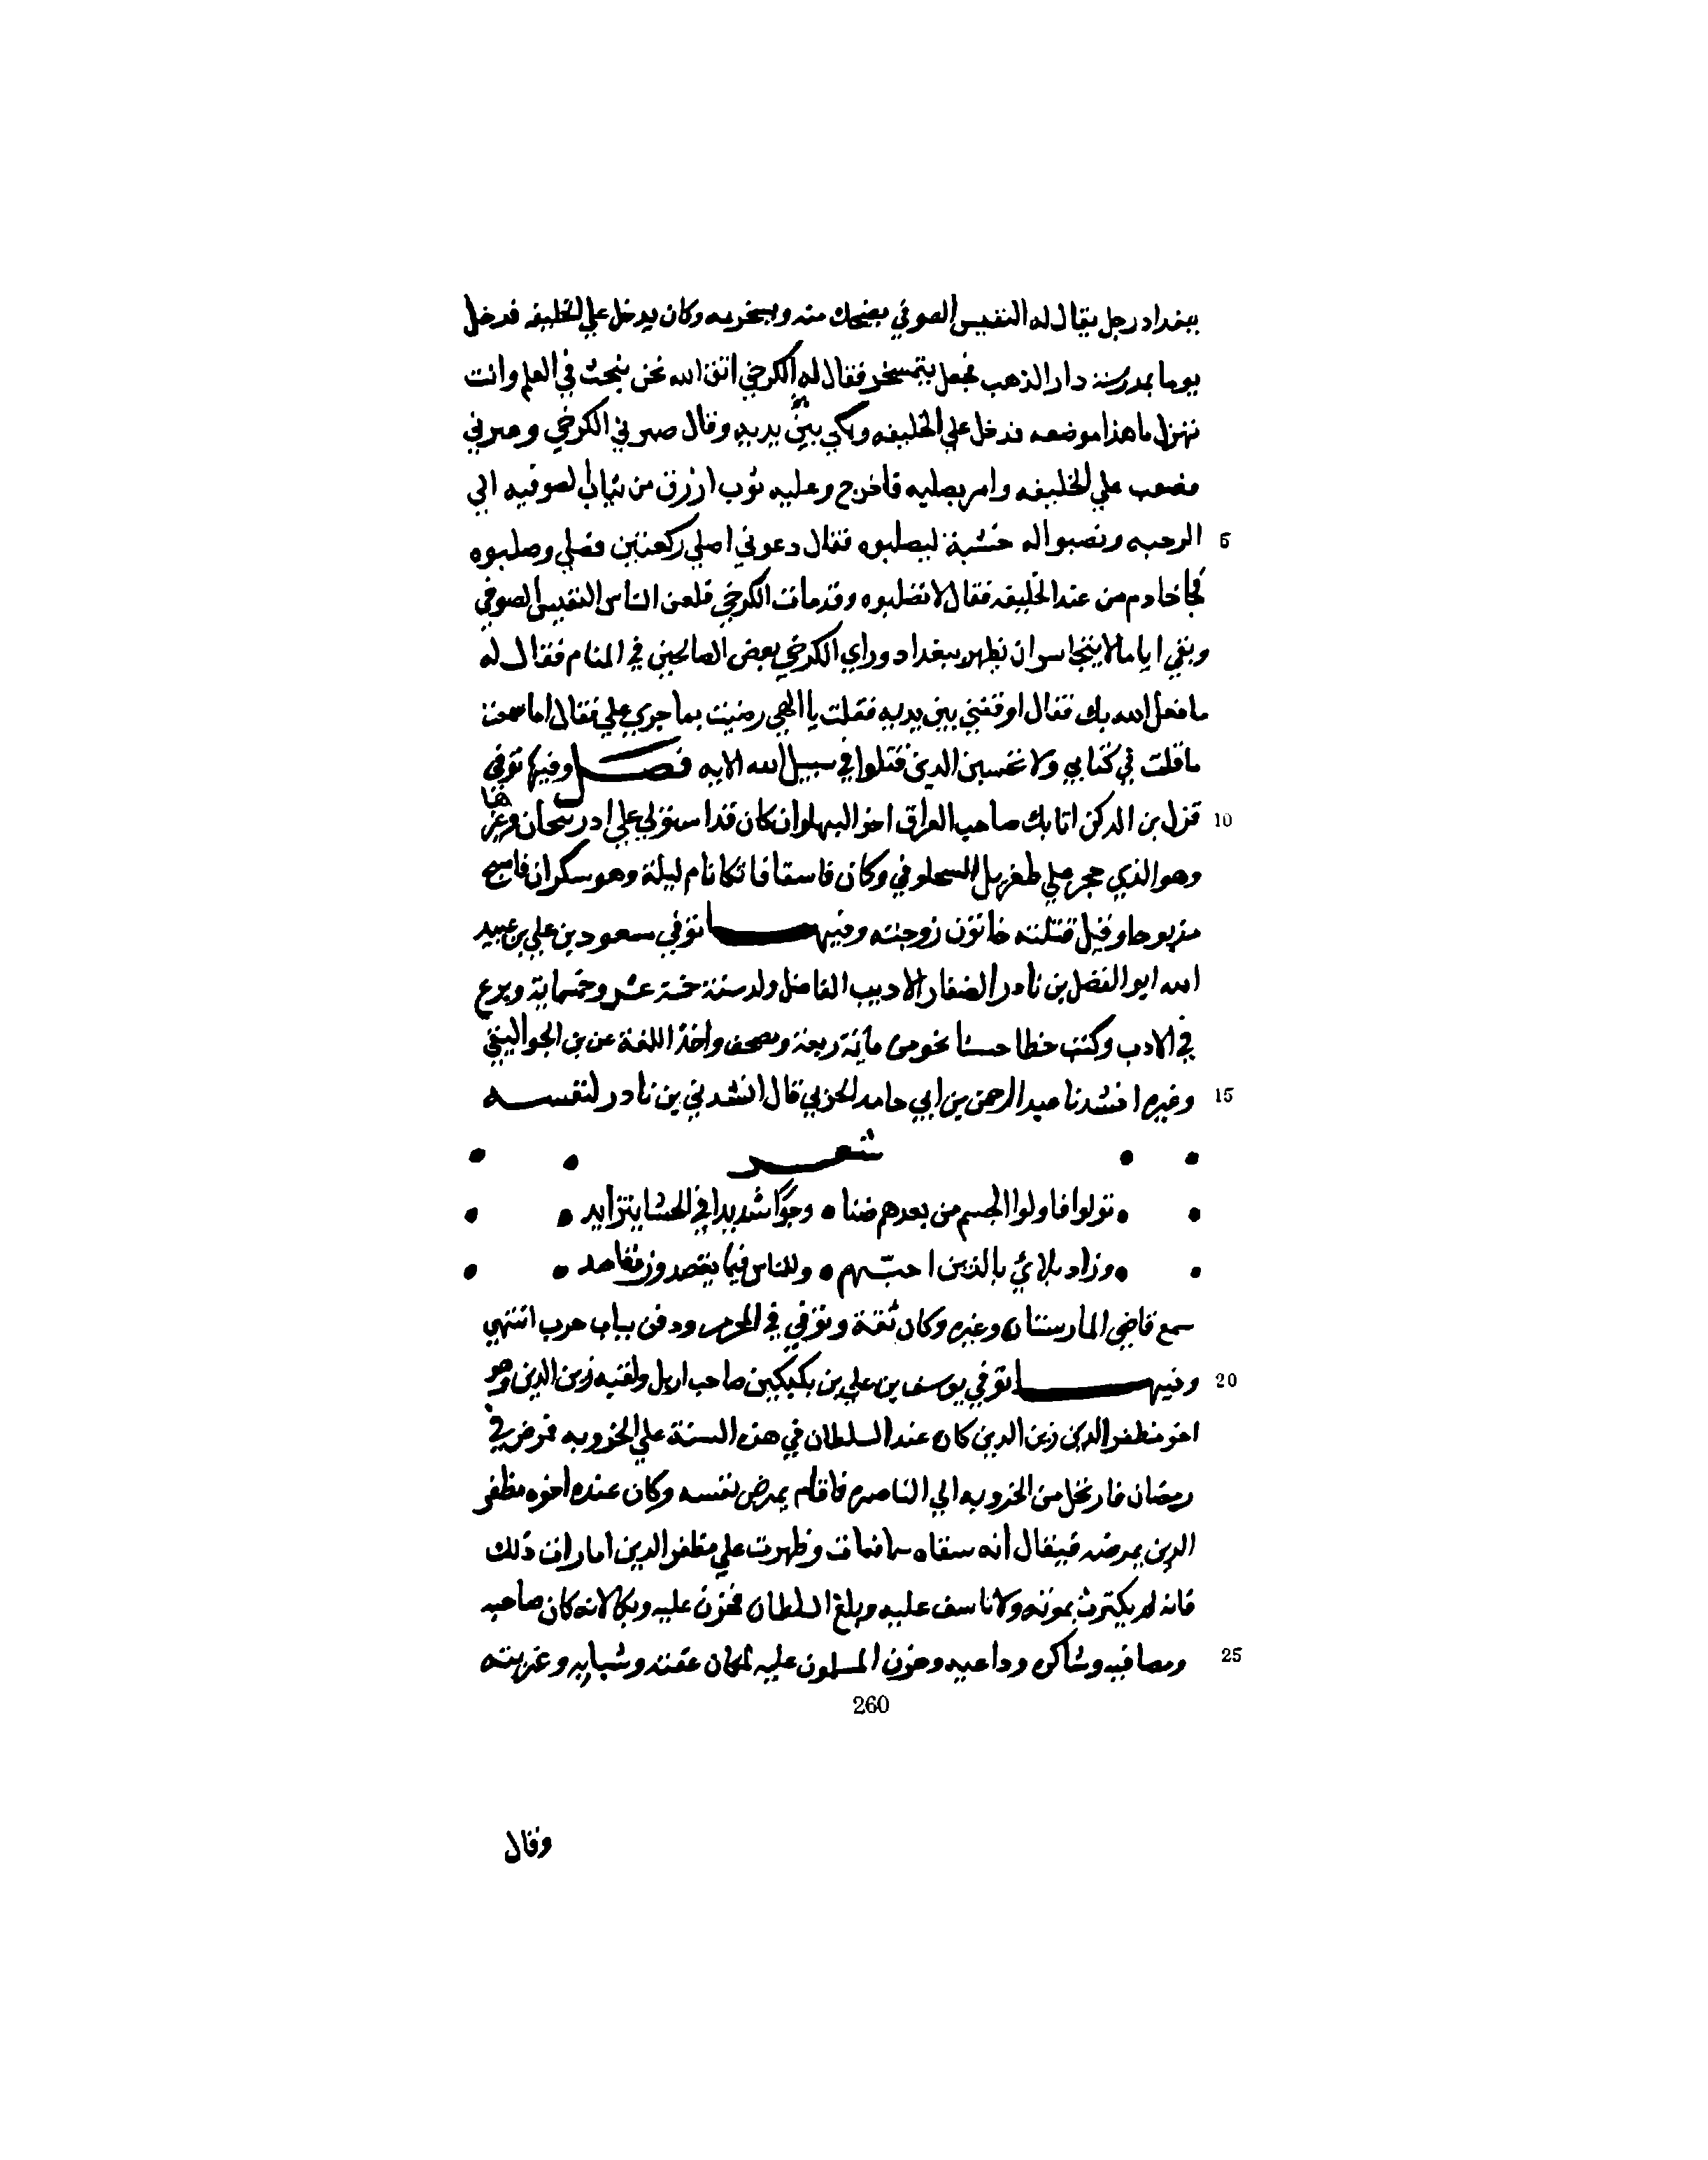 ببغداد رجل يقال له النفيس الصوفي يضحك منه ويسخر به وكان يدخل علي الخليفه فدخل
يوما بمدرسة دار الذهب فجعل يتمسخر فقال له الكرخي اتق الله نحن نبحث في العلم وانت
تهزل ما هذا موضعه فدخل علي الخليفه وبكي بين يديه وقال ضربني الكرخي وعيرني
فغضب علي الخليفه وامر بصلبه فاخرج وعليه ثوب ازرق من ثياب الصوفيه الي
5 الرحبه ونصبوا له خشبة ليصلبوه فقال دعوني اصلي ركعتين فصلي وصلبوه
فجا خادم من عند الخليفه فقال لا تصلبوه وقد مات الكرخي فلعن الناس النفيس الصوفي
وبقي اياما لا يتجاسر ان يظهر ببغداد وراي الكرخي بعض الصالحين في المنام فقال له
ما فعل الله بك فقال اوقفني بين يديه فقلت يا الهي رضيت بما جري علي فقال اما سمعت
ما قلت في كتابي ولا تحسبن الذين قتلوا في سبيل الله الايه فصل وفيها توفي
10 قزل بن الدكز اتابك صاحب العراق اخو البهلوان كان قد استولي علي ادربيجان وغيرها
وهو الذي حجر علي طغريل السحلوفي وكان فاسقا فاتكا نام ليلة وهو سكران فاصبح
مذبوحا وقيل قتلته خاتون زوجته وفيها توفي سعود بن علي بن عبيد
الله ابو الفضل بن نادر الصفار الاديب الفاضل ولد سنة خمسة عشر وخمسماية وبرع
في الادب وكتب خطا حسنا نحو من مأية ربعة ومصحف واخذ اللغة عن بن الجواليقي
15 وغيره انشدنا عبد الرحمن بن ابي حامد الحربي قال انشدني بن نادر لنفسه
شعر
تولوا فاولوا الجسم من بعدهم ضنا • وجوًا شديدا في الحشا يتزايد
وزاد بلائي بالذين احبّهم • وللناس فيما يقصدون مقاصد
سمع قاضي المارستان وغيره وكان ثقة وتوفي في المحرم ودفن بباب حرب انتهي
20 وفيها توفي يوسف بن علي بن بكتكين صاحب اربل ولقبه زين الدين وهو
اخو مظفر الدين زين الدين كان عند السلطان في هذه السنة علي الخروبه فمرض في
رمضان فارتحل من الخروبه الي الناصره فاقام يمرض نفسه وكان عنده اخوه مظفر
الدين يمرضه فيقال انه سقاه سما فمات وظهرت علي مظفر الدين امارات ذلك
فانه لم يكترث بموته ولا تاسف عليه وبلغ السلطان فحزن عليه وبكا لانه كان صاحبه
25 ومصافيه وشاكره وداعيه وحزن المسلمون عليه لمكان عفته وشبابه وغربته
260
وقال